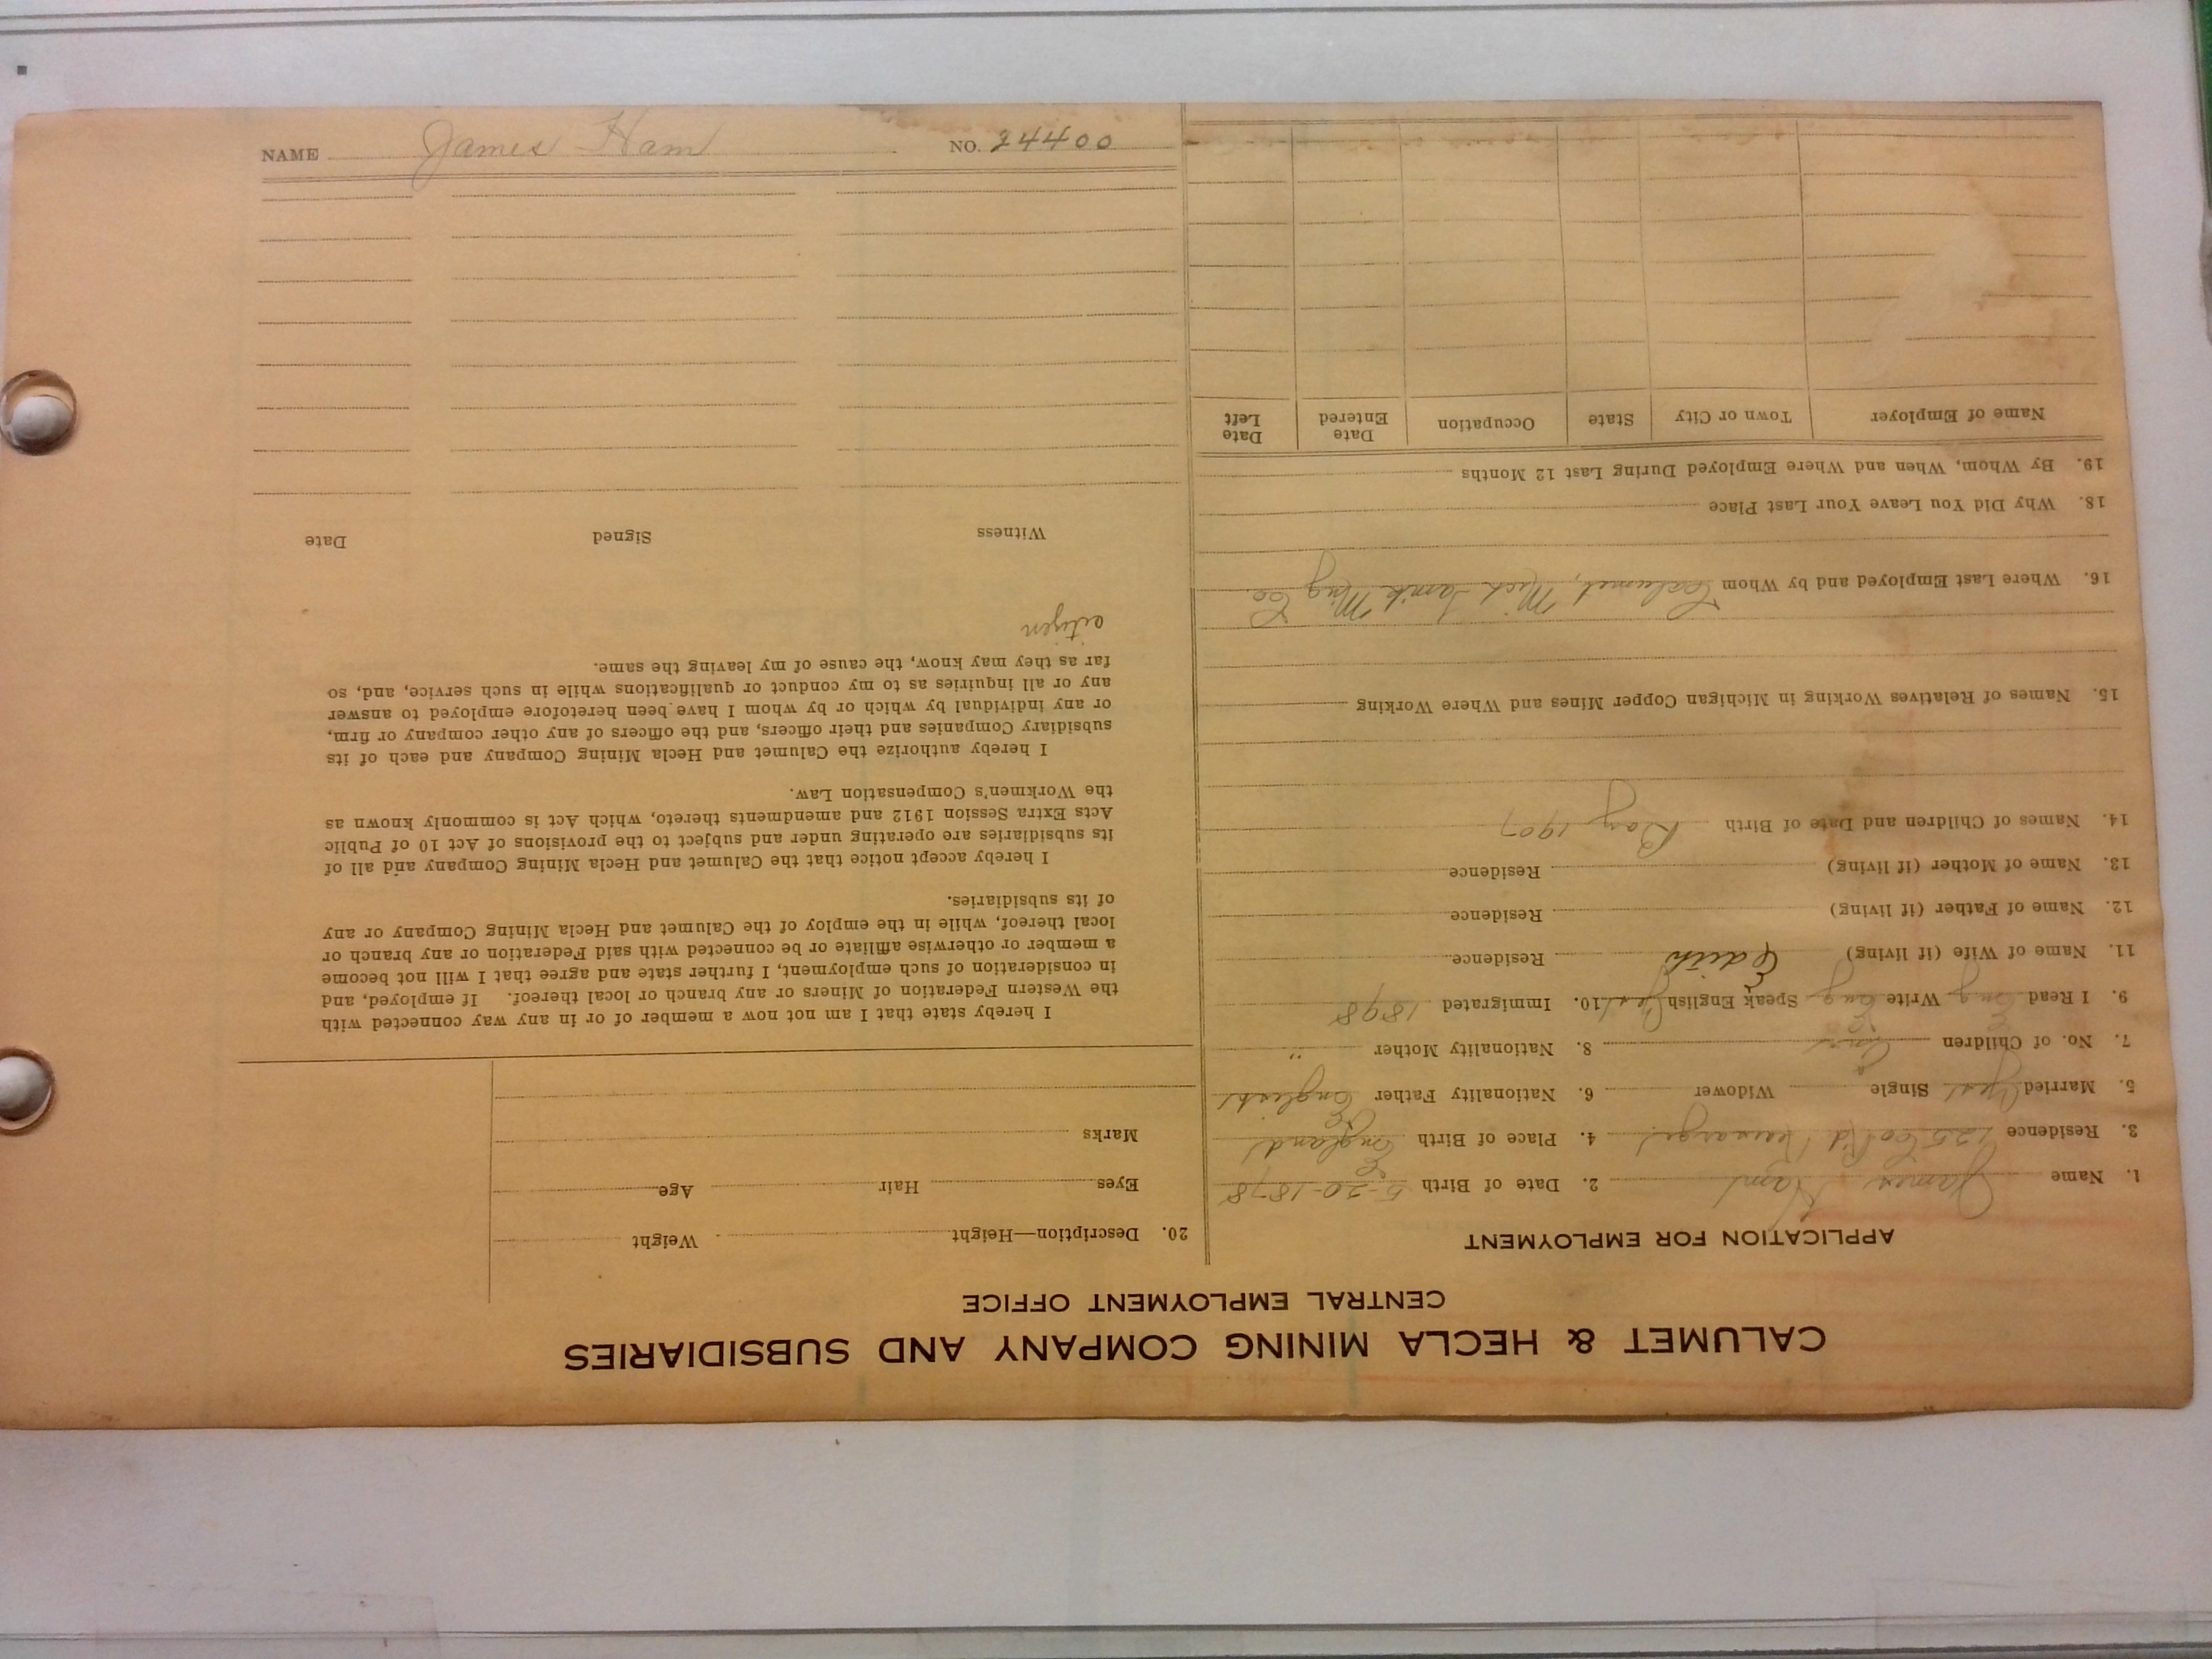 CALUMET & HECLA MINING COMPANY AND SUBSIDIARIES
CENTRAL EMPLOYMENT OFFICE
APPLICATION FOR EMPLOYMENT
1. Name James Ham 2. Date of Birth 5-20-1878
3. Residence 125 Co Rd 4. Place of Birth England
5. Married Yes Single Widower 6. Nationality Father English
7. No. of Children One 8. Nationality Mother "
9. I Read Eng Write Eng Speak English Yes 10. Immigrated 1898
11. Name of Wife (if living) Edith Residence
12. Name of Father (if living) Residence
13. Name of Mother (if living) Residence
14. Names of Children and Date of Birth Roy 1907
15. Names of Relatives Working in Michigan Copper Mines and Where Working
16. Where Last Employed and by Whom Calumet, Mich Mng Co.
18. Why Did You Leave Your Last Place
19. By Whom, When and Where Employed During Last 12 Months
Name of Employer Town or City State Occupation Date Entered Date Left
20. Description—Height Weight
Eyes Hair Age
Marks
I hereby state that I am not now a member of or in any way connected with
the Western Federation of Miners or any branch or local thereof. If employed, and
in consideration of such employment, I further state and agree that I will not become
a member or otherwise affiliate or be connected with said Federation or any branch or
local thereof, while in the employ of the Calumet and Hecla Mining Company or any
of its subsidiaries.
I hereby accept notice that the Calumet and Hecla Mining Company and all of
its subsidiaries are operating under and subject to the provisions of Act 10 of Public
Acts Extra Session 1912 and amendments thereto, which Act is commonly known as
the Workmen's Compensation Law.
I hereby authorize the Calumet and Hecla Mining Company and each of its
subsidiary Companies and their officers, and the officers of any other company or firm,
or any individual by which or by whom I have been heretofore employed to answer
any or all inquiries as to my conduct or qualifications while in such service, and, so
far as they may know, the cause of my leaving the same.
citizen
Witness Signed Date
NAME James Ham NO. 24400